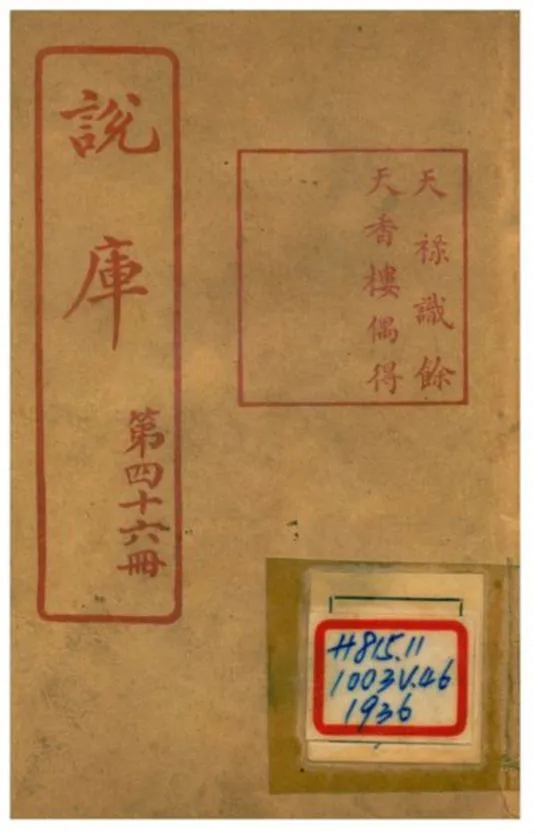 說庫
第四十六冊
天祿識餘
天香樓偶得
H815.11
1003V.46
1936